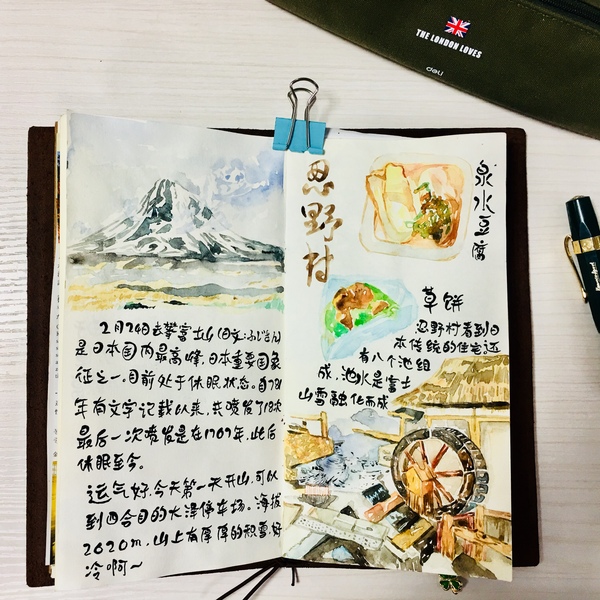 THE LONDON LOVES
deli
2月24日去攀富士山(日文:ふじさん)
是日本国内最高峰,日本重要国象
征之一.目前处于休眠状态.自781
年有文字记载以来,共喷发了18次
最后一次喷发是在1707年,此后
休眠至今。
运气好,今天第一天开山,可以
到四合目的大泽停车场。海拔
2020m,山上有厚厚的积雪,好
冷啊~
忍野村
泉水豆腐
草饼
忍野村看到日
本传统的住宅还
有八个池组
成,池水是富士
山雪融化而成